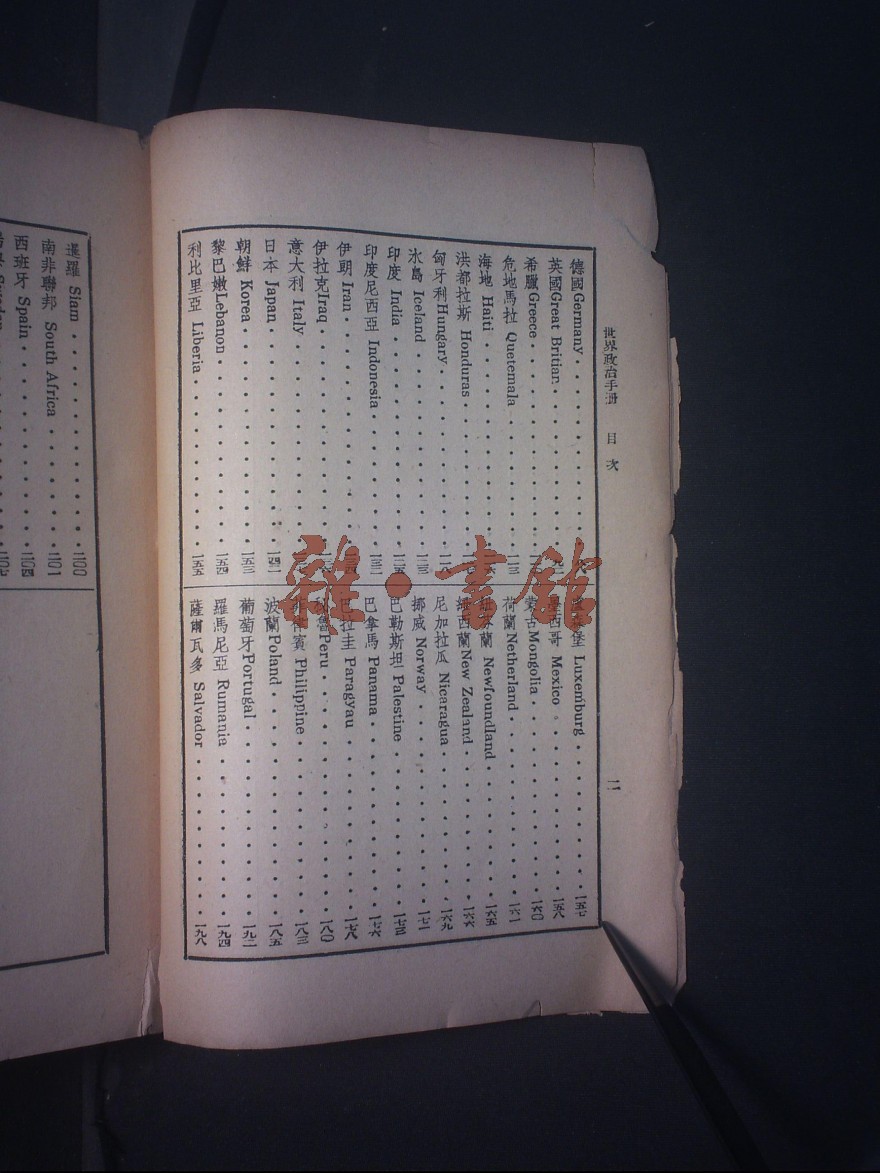 世界政治手册 目次 二
德國 Germany
英國 Great Britian
希臘 Greece
危地馬拉 Quetemala 一一三
海地 Haiti
洪都拉斯 Honduras
匈牙利 Hungary
冰島 Iceland 一二三
印度 India 一二五
印度尼西亞 Indonesia 一三一
伊朗 Iran
伊拉克 Iraq
意大利 Italy
日本 Japan 一四二
朝鮮 Korea 一五三
黎巴嫩 Lebanon 一五四
利比里亞 Liberia 一五五
堡 Luxemburg 一五七
墨西哥 Mexico 一五八
蒙古 Mongolia 一六〇
荷蘭 Netherland 一六一
紐芬蘭 Newfoundland 一六五
紐西蘭 New Zealand 一六六
尼加拉瓜 Nicaragua 一六九
挪威 Norway 一七一
巴勒斯坦 Palestine 一七三
巴拿馬 Panama 一七六
巴拉圭 Paragyau 一七八
秘魯 Peru 一八〇
菲律賓 Philippine 一八三
波蘭 Poland 一八五
葡萄牙 Portugal 一九二
羅馬尼亞 Rumania 一九四
薩爾瓦多 Salvador 一九八
暹羅 Siam 二〇〇
南非聯邦 South Africa 二〇一
西班牙 Spain 二〇四
Sweden 二〇七
雜·書館